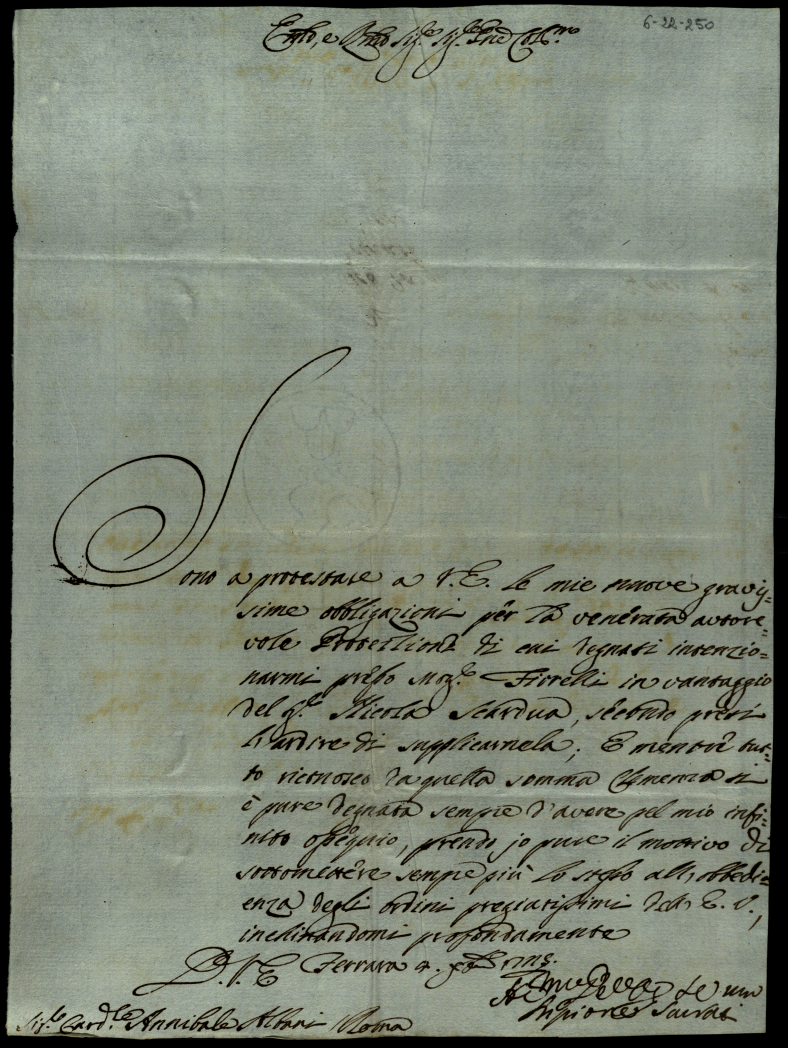 6-22-250
Emo, e Rmo Sig.r Sig.r Pne Col.mo
Sono a protestare a V. E. le mie nuove gravis=
sime obbligazioni per la venerata autore=
vole Protezione di cui degnasi intenzio=
narmi presso Mons.r Firrelli in vantaggio
del Nicola Scardua, secondo presi
l'ardire di supplicarnela; E mentre tut=
to riconosco da quella somma Clemenza si
è pure degnata sempre d'avere pel mio infi=
nito ossequio, prendo jo pure il motivo di
sottomettere sempre più lo stesso all'obbedi=
enza degli ordini pregiatissimi dell'E. V.,
inchinandomi profondamente
D. V. E. Ferrara
Scipione Sacrati
Sig.r Card.le Annibale Albani Roma